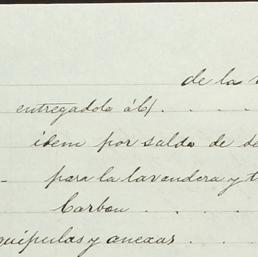 de la
entregadole á
idem por saldo de
para la lavandera y
Carbon
y anexas